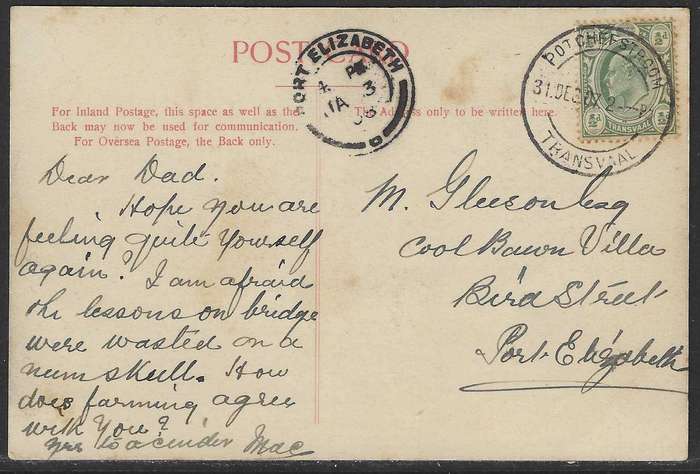 POST CARD
PORT ELIZABETH
4 PM
JA 3
08
POTCHEFSTROOM
31.DEC.07 2
TRANSVAAL
½d
½d
TRANSVAAL
For Inland Postage, this space as well as the
Back may now be used for communication.
For Oversea Postage, the Back only.
The Address only to be written here.
Dear Dad.
Hope you are
feeling quite yourself
again? I am afraid
the lessons on bridge
were wasted on a
numskull. How
does farming agree
with you?
Yrs to a cinder Mac
M. Gleeson Esq
Cool Bawn Villa
Bird Street
Port Elizabeth